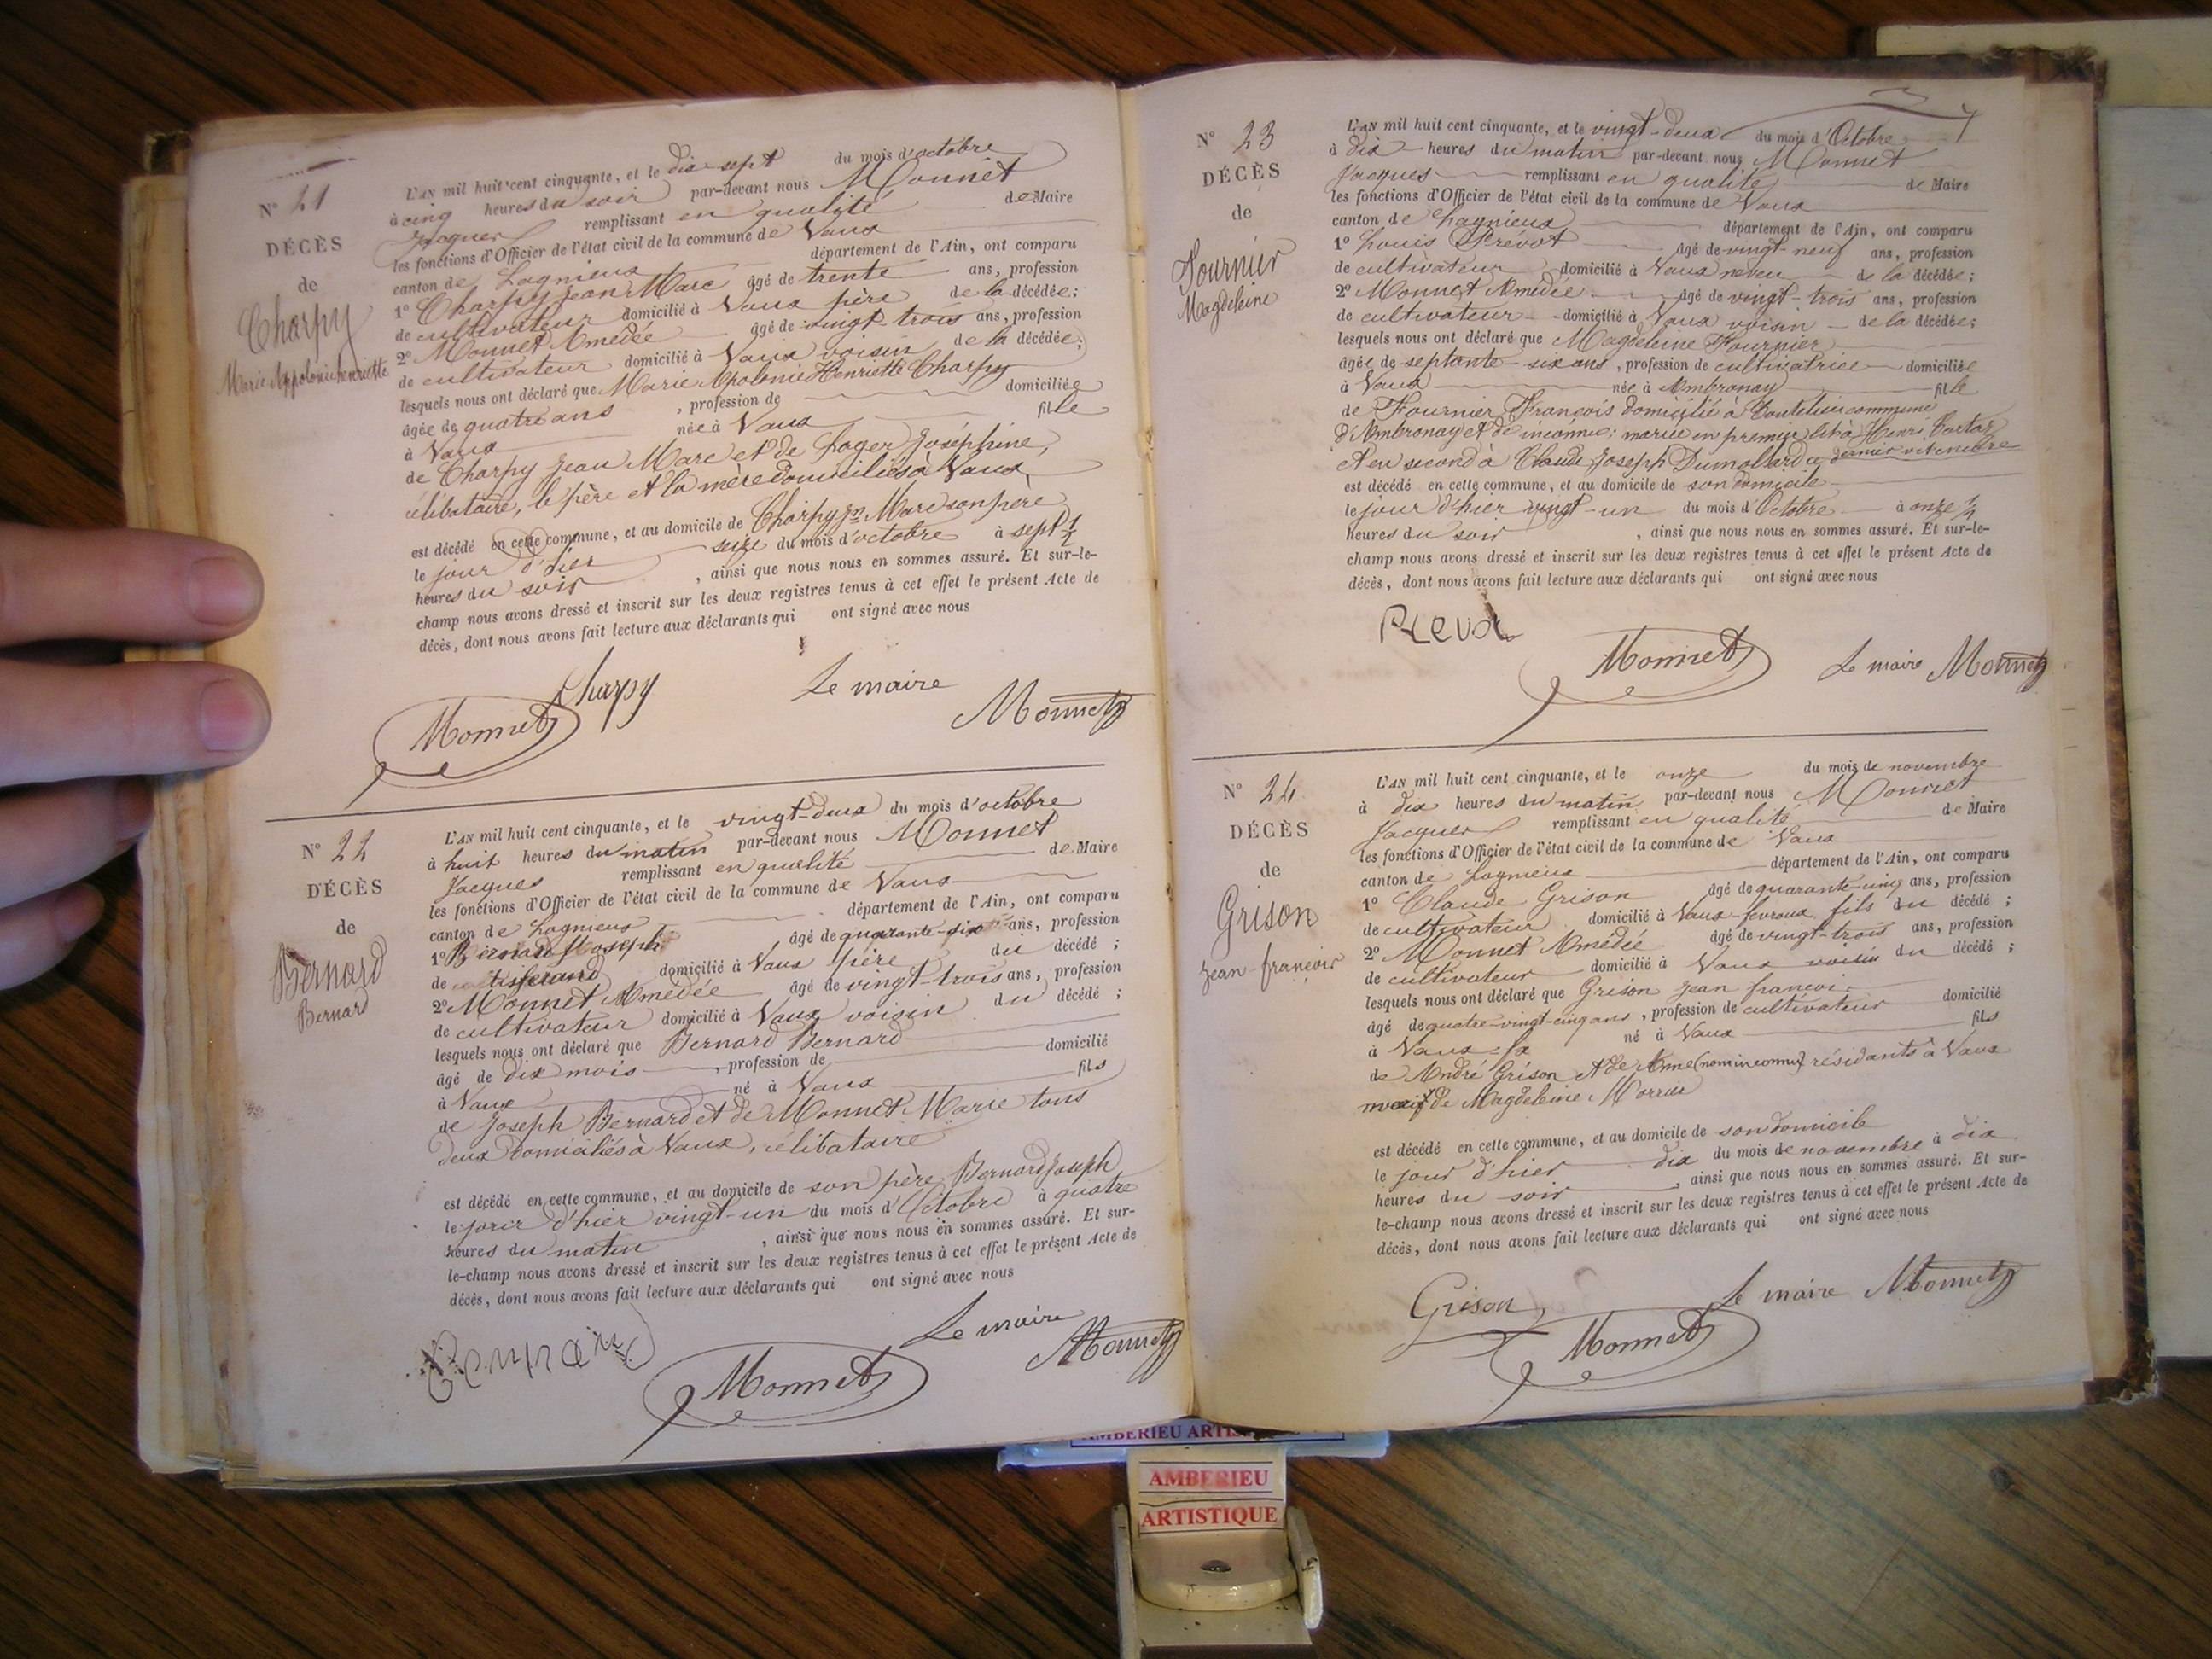 N° 21
DÉCÈS
de
Charpy
Marie Appolonie henriette
L'AN mil huit cent cinquante, et le dix sept du mois d'octobre
à cinq heures du soir par-devant nous Monnet
Jacques remplissant en qualité de Maire
les fonctions d'Officier de l'état civil de la commune de Vaux
canton de Lagnieux département de l'Ain, ont comparu
1° Charpy Jean Marc âgé de trente ans, profession
de cultivateur domicilié à Vaux père de la décédée;
2° Monnet Amédée âgé de vingt trois ans, profession
de cultivateur domicilié à Vaux voisin de la décédée;
lesquels nous ont déclaré que Marie Apolonie Henriette Charpy
âgée de quatre ans , profession de domiciliée
à Vaux née à Vaux fille
de Charpy Jean Marc et de Loger Joséphine,
célibataire, le père et la mère domiciliés à Vaux
est décédé en cette commune, et au domicile de Charpy Jn Marc son père
le jour d'hier seize du mois d'octobre à sept 1/2
heures du soir , ainsi que nous nous en sommes assuré. Et sur-le-
champ nous avons dressé et inscrit sur les deux registres tenus à cet effet le présent Acte de
décès, dont nous avons fait lecture aux déclarants qui ont signé avec nous
Charpy Le maire
Monnet Monnet
N° 22
DÉCÈS
de
Bernard
Bernard
L'AN mil huit cent cinquante, et le vingt-deux du mois d'octobre
à huit heures du matin par-devant nous Monnet
Jacques remplissant en qualité de Maire
les fonctions d'Officier de l'état civil de la commune de Vaux
canton de Lagnieux département de l'Ain, ont comparu
1° Bernard Joseph âgé de quarante-six ans, profession
de tisserand domicilié à Vaux père du décédé ;
2° Monnet Amédée âgé de vingt-trois ans, profession
de cultivateur domicilié à Vaux voisin du décédé ;
lesquels nous ont déclaré que Bernard Bernard
âgé de dix mois , profession de domicilié
à Vaux né à Vaux fils
de Joseph Bernard et de Monnet Marie tous
deux domiciliés à Vaux, célibataire
est décédé en cette commune, et au domicile de son père Bernard Joseph
le jour d'hier vingt-un du mois d'Octobre à quatre
heures du matin , ainsi que nous nous en sommes assuré. Et sur-
le-champ nous avons dressé et inscrit sur les deux registres tenus à cet effet le présent Acte de
décès, dont nous avons fait lecture aux déclarants qui ont signé avec nous
Le maire
Monnet Monnet
N° 23
DÉCÈS
de
Fournier
Magdeleine
L'AN mil huit cent cinquante, et le vingt-deux du mois d'Octobre
à dix heures du matin par-devant nous Monnet
Jacques remplissant en qualité de Maire
les fonctions d'Officier de l'état civil de la commune de Vaux
canton de Lagnieux département de l'Ain, ont comparu
1° Louis Prevot âgé de vingt-neuf ans, profession
de cultivateur domicilié à Vaux neveu de la décédée;
2° Monnet Amédée âgé de vingt-trois ans, profession
de cultivateur domicilié à Vaux voisin de la décédée;
lesquels nous ont déclaré que Magdeleine Fournier
âgée de septante-six ans , profession de cultivatrice domiciliée
à Vaux née à Ambronay fille
de Fournier François domicilié à commune
d'Ambronay et de inconnue; mariée en premier lit à Henri
et en second à Claude Joseph Dumollard ce dernier vit encore
est décédé en cette commune, et au domicile de son domicile
le jour d'hier vingt-un du mois d'Octobre à onze 1/2
heures du soir , ainsi que nous nous en sommes assuré. Et sur-le-
champ nous avons dressé et inscrit sur les deux registres tenus à cet effet le présent Acte de
décès, dont nous avons fait lecture aux déclarants qui ont signé avec nous
Monnet Le maire Monnet
N° 24
DÉCÈS
de
Grison
Jean-françois
L'AN mil huit cent cinquante, et le onze du mois de novembre
à dix heures du matin par-devant nous Monnet
Jacques remplissant en qualité de Maire
les fonctions d'Officier de l'état civil de la commune de Vaux
canton de Lagnieux département de l'Ain, ont comparu
1° Claude Grison âgé de quarante-cinq ans, profession
de cultivateur domicilié à Vaux-fevroux fils du décédé ;
2° Monnet Amédée âgé de vingt-trois ans, profession
de cultivateur domicilié à Vaux voisin du décédé ;
lesquels nous ont déclaré que Grison Jean françois
âgé de quatre-vingt-cinq ans , profession de cultivateur domicilié
à Vaux-fx né à Vaux fils
de André Grison et de Anne (nom inconnu) résidants à Vaux
de Magdeleine Morrier
est décédé en cette commune, et au domicile de son domicile
le jour d'hier dix du mois de novembre à dix
heures du soir , ainsi que nous nous en sommes assuré. Et sur-
le-champ nous avons dressé et inscrit sur les deux registres tenus à cet effet le présent Acte de
décès, dont nous avons fait lecture aux déclarants qui ont signé avec nous
Grison Le maire Monnet
Monnet
AMBERIEU
AMBERIEU
ARTISTIQUE